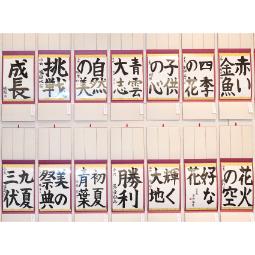 赤い
金魚
四季
の花
子供
の心
青雲
大志
自然
の美
挑戦
成長
花火
の空
好な
花
輝く
大地
勝利
初夏
青葉
美の
祭典
九夏
三伏